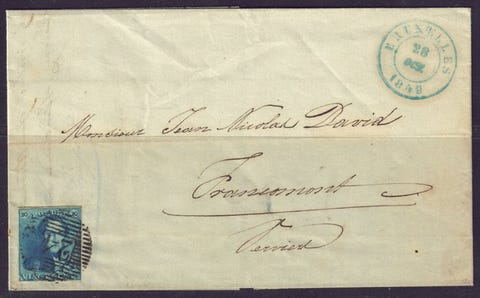 BRUXELLES
28
OCT.
1849
Monsieur Jean Nicolas David
Francomont
Verviers
24